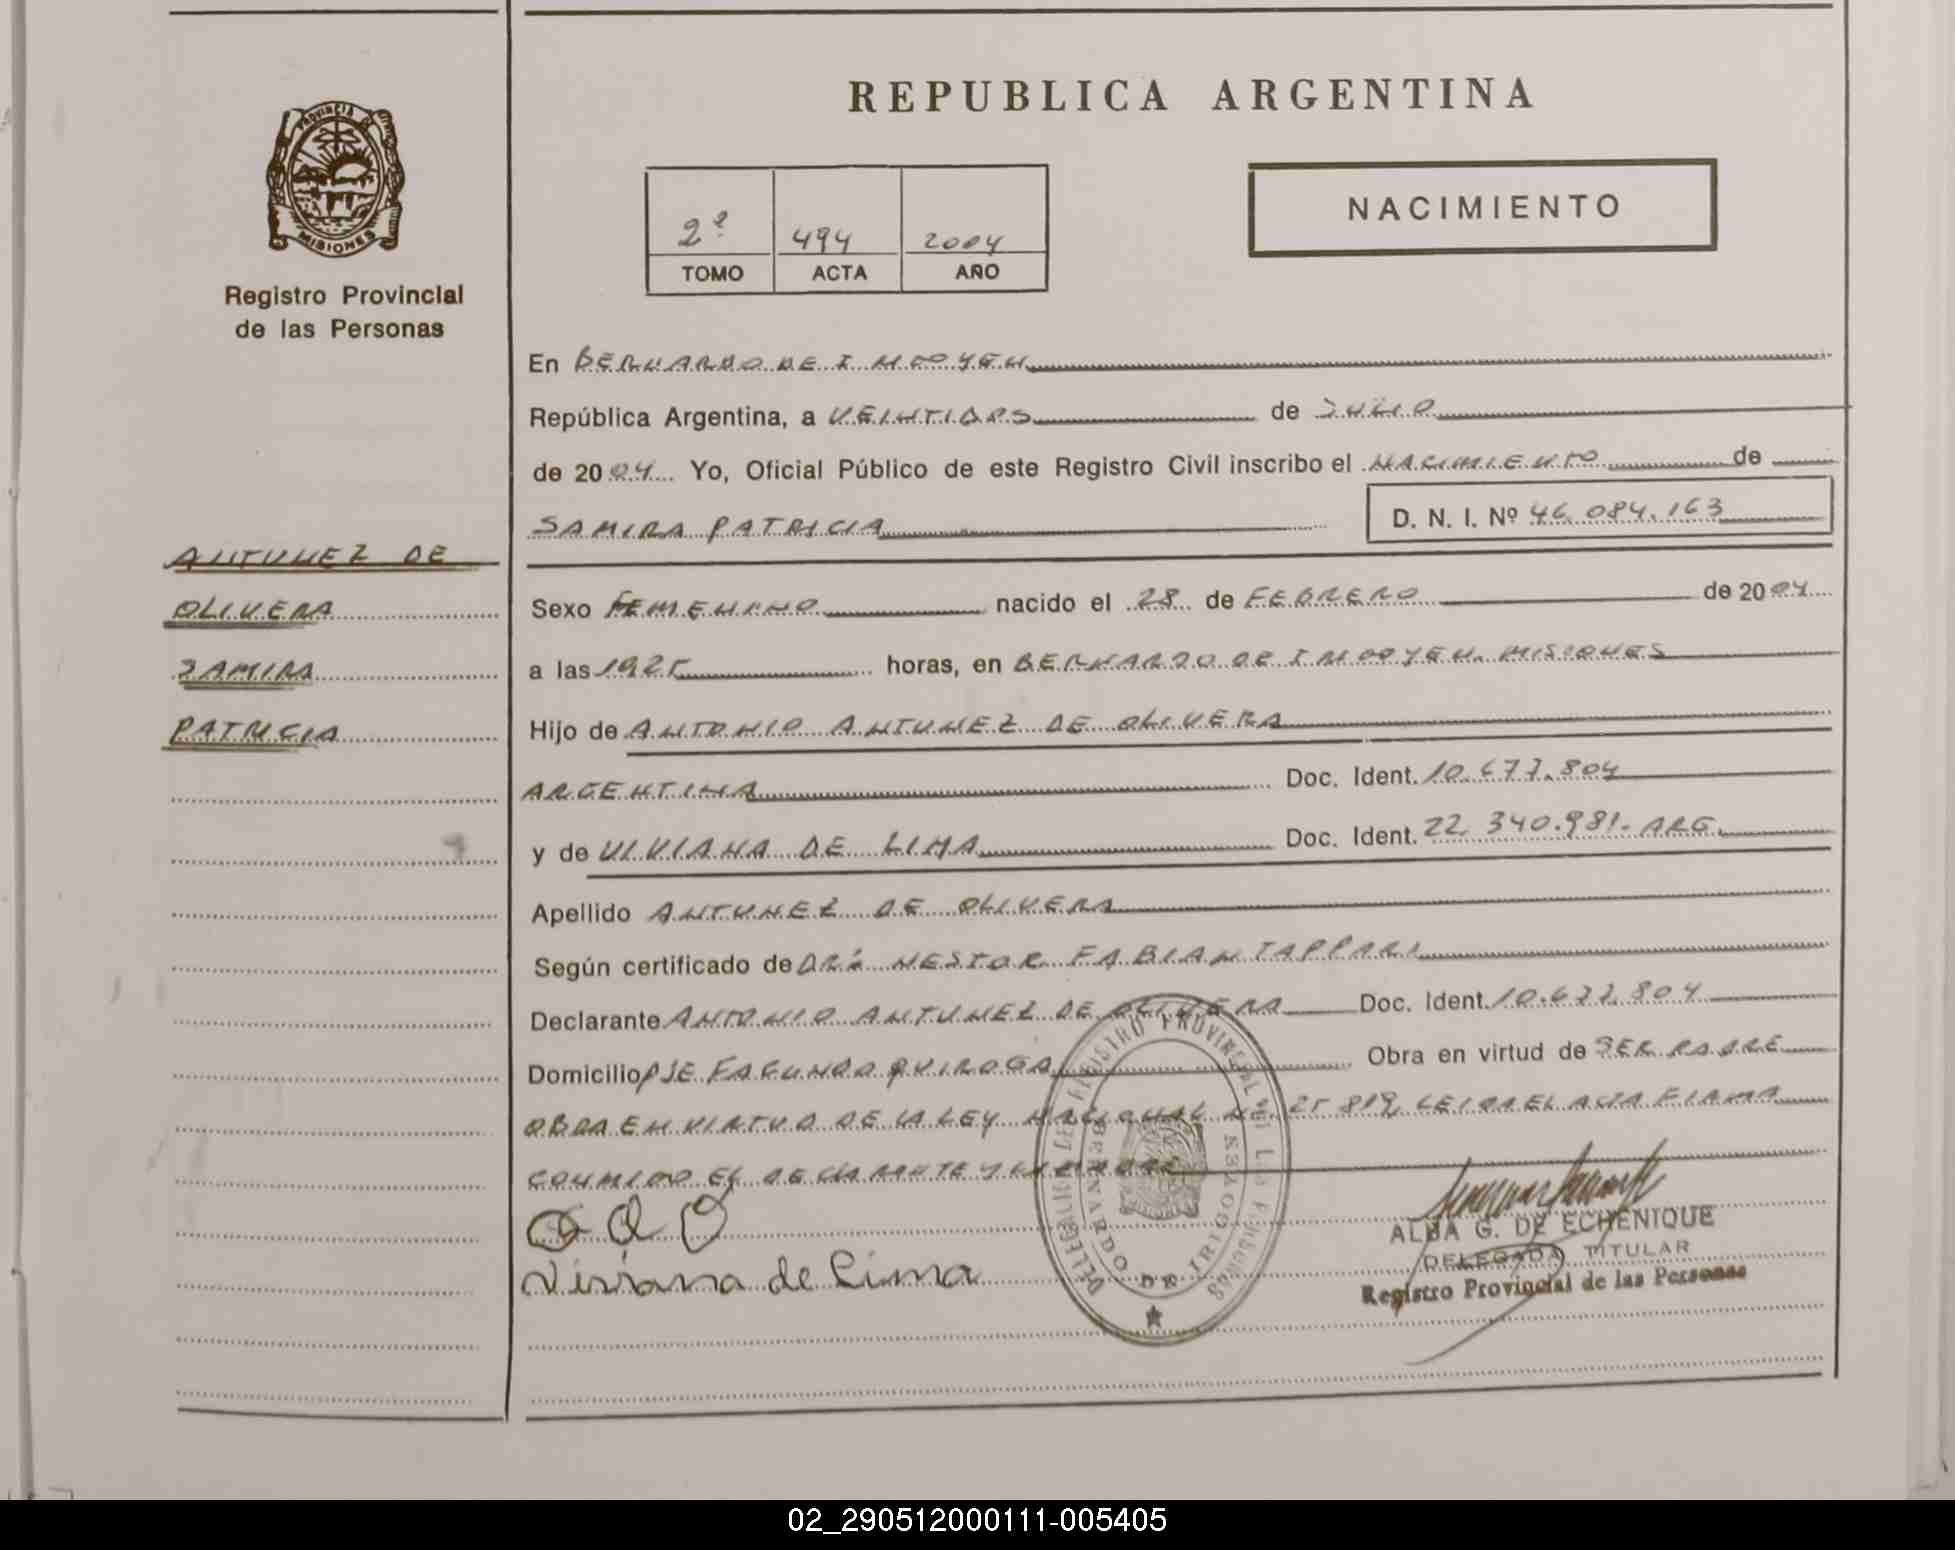 REPUBLICA ARGENTINA
PROVINCIA D
MISIONES
Registro Provincial
de las Personas
2º 494 2004
TOMO ACTA AÑO
NACIMIENTO
En BERNARDO DE IRIGOYEN
República Argentina, a VEINTIDOS de JULIO
de 2004 Yo, Oficial Público de este Registro Civil inscribo el NACIMIENTO de
SAMIRA PATRICIA D. N. I. Nº 46.084.163
ANTUNEZ DE
OLIVERA
SAMIRA
PATRICIA
Sexo FEMENINO nacido el 28 de FEBRERO de 2004
a las 1925 horas, en BERNARDO DE IRIGOYEN. MISIONES
Hijo de ANTONIO ANTUNEZ DE OLIVERA
ARGENTINA Doc. Ident. 10.677.804
y de VIVIANA DE LIMA Doc. Ident. 22.340.981. ARG.
Apellido ANTUNEZ DE OLIVERA
Según certificado de NESTOR FABIAN TAPPARI
Declarante ANTONIO ANTUNEZ DE OLIVERA Doc. Ident. 10.677.804
Domicilio PJE FACUNDO QUIROGA Obra en virtud de SER PADRE
OBRA EN VIRTUD DE LA LEY NACIONAL Nº 25819, LEIDA EL ACTA FIRMA
CONMIGO EL DECLARANTE Y LA MADRE
O A O
Viviana de Lima
DELEGACION DEL REGISTRO PROVINCIAL DE LAS PERSONAS
BERNARDO DE IRIGOYEN
ALBA G. DE ECHENIQUE
DELEGADA TITULAR
Registro Provincial de las Personas
02_290512000111-005405